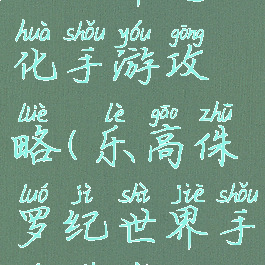 huà shǒu yóu gōng
化手游攻
lüè lè gāo zhū
略(乐高侏
luó jì shì jiè shǒu
罗纪世界手